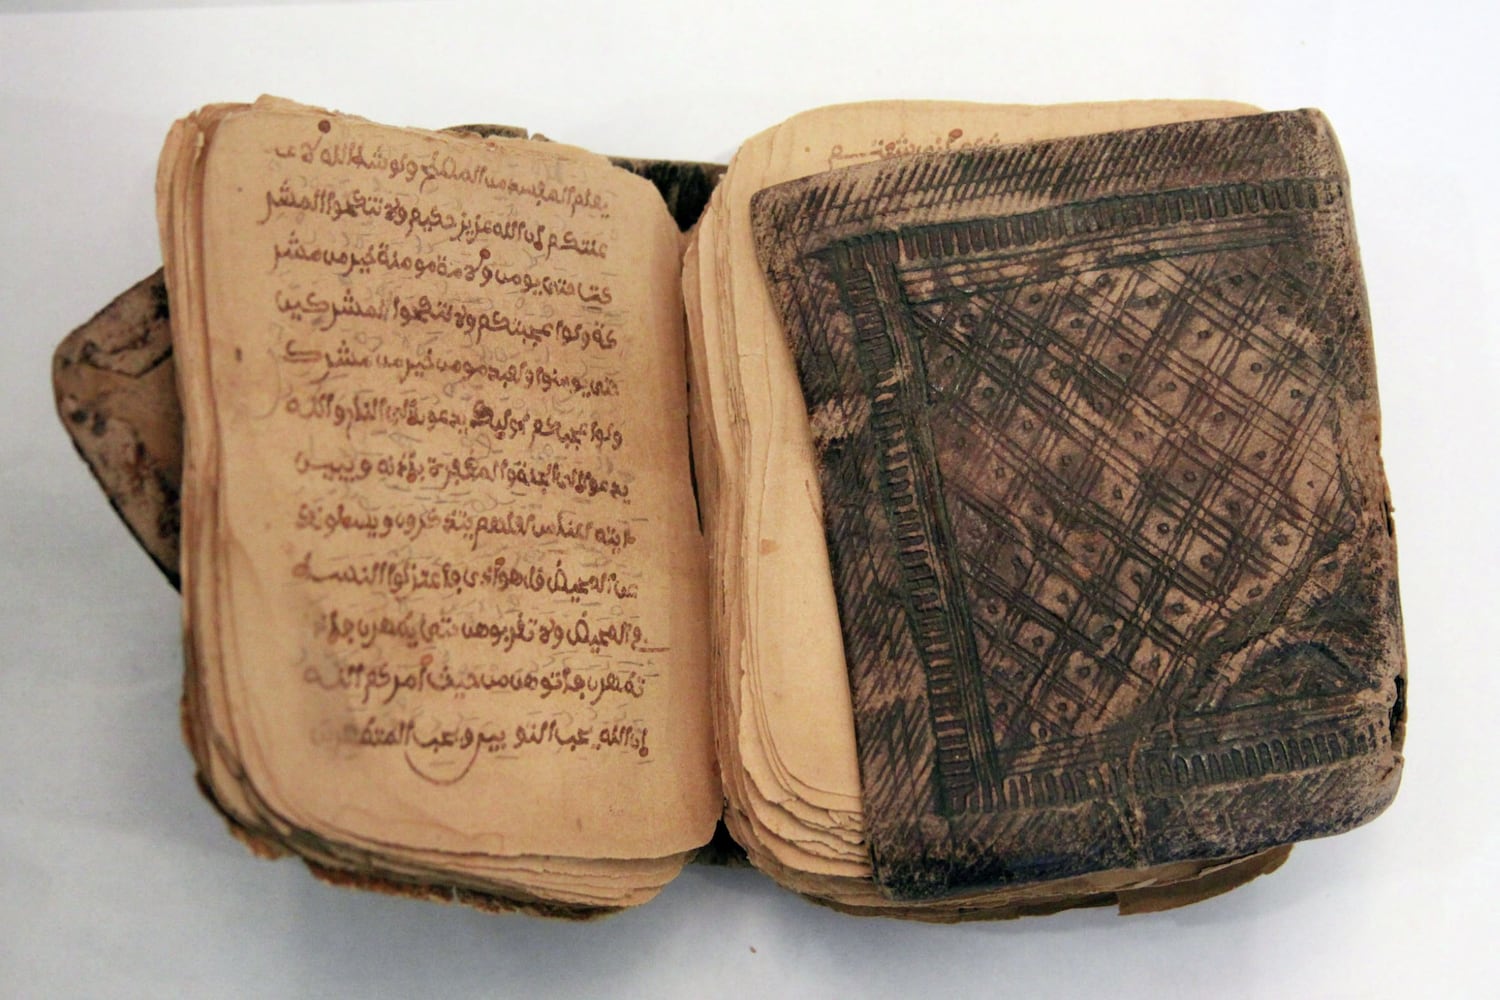 يعلم المفسد من المصلح ولو شا الله لا
عنتكم ان الله عزيز حكيم ولا تنكحوا المشر
كت حتى يومن ولامة مومنة خير من مشر
كة ولو اعجبتكم ولا تنكحوا المشركين
حتى يومنوا ولعبد مومن خير من مشرك
ولو اعجبكم اوليك يدعون الى النار والله
يدعوا الى الجنة والمغفرة بإذنه ويبين
ءايته للناس لعلهم يتذكرون ويسلونك
عن المحيض قل هو اذى فاعتزلوا النسا
والمحيض ولا تقربوهن حتى يطهرن فإذا
تطهرن فاتوهن من حيث امركم الله
ان الله يحب التوبين ويحب المتطهرين